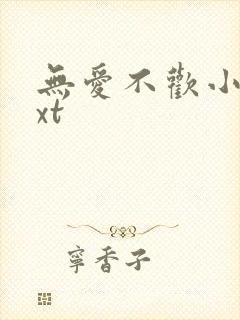 無愛不歡小
xt
寧香子